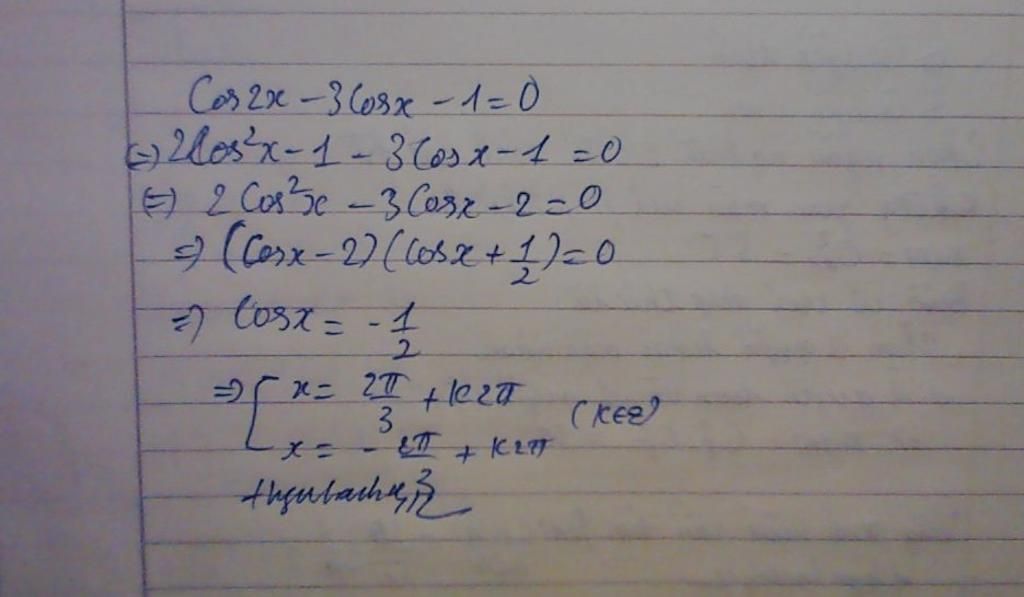 Cos2x - 3Cosx - 1 = 0
(=) 2Cos²x - 1 - 3Cosx - 1 = 0
(=) 2Cos²x - 3Cosx - 2 = 0
=) (Cosx - 2)(Cosx + 1/2) = 0
=) Cosx = - 1/2
=) [ x = 2π/3 + K2π
x = - 2π/3 + K2π (K∈Z)